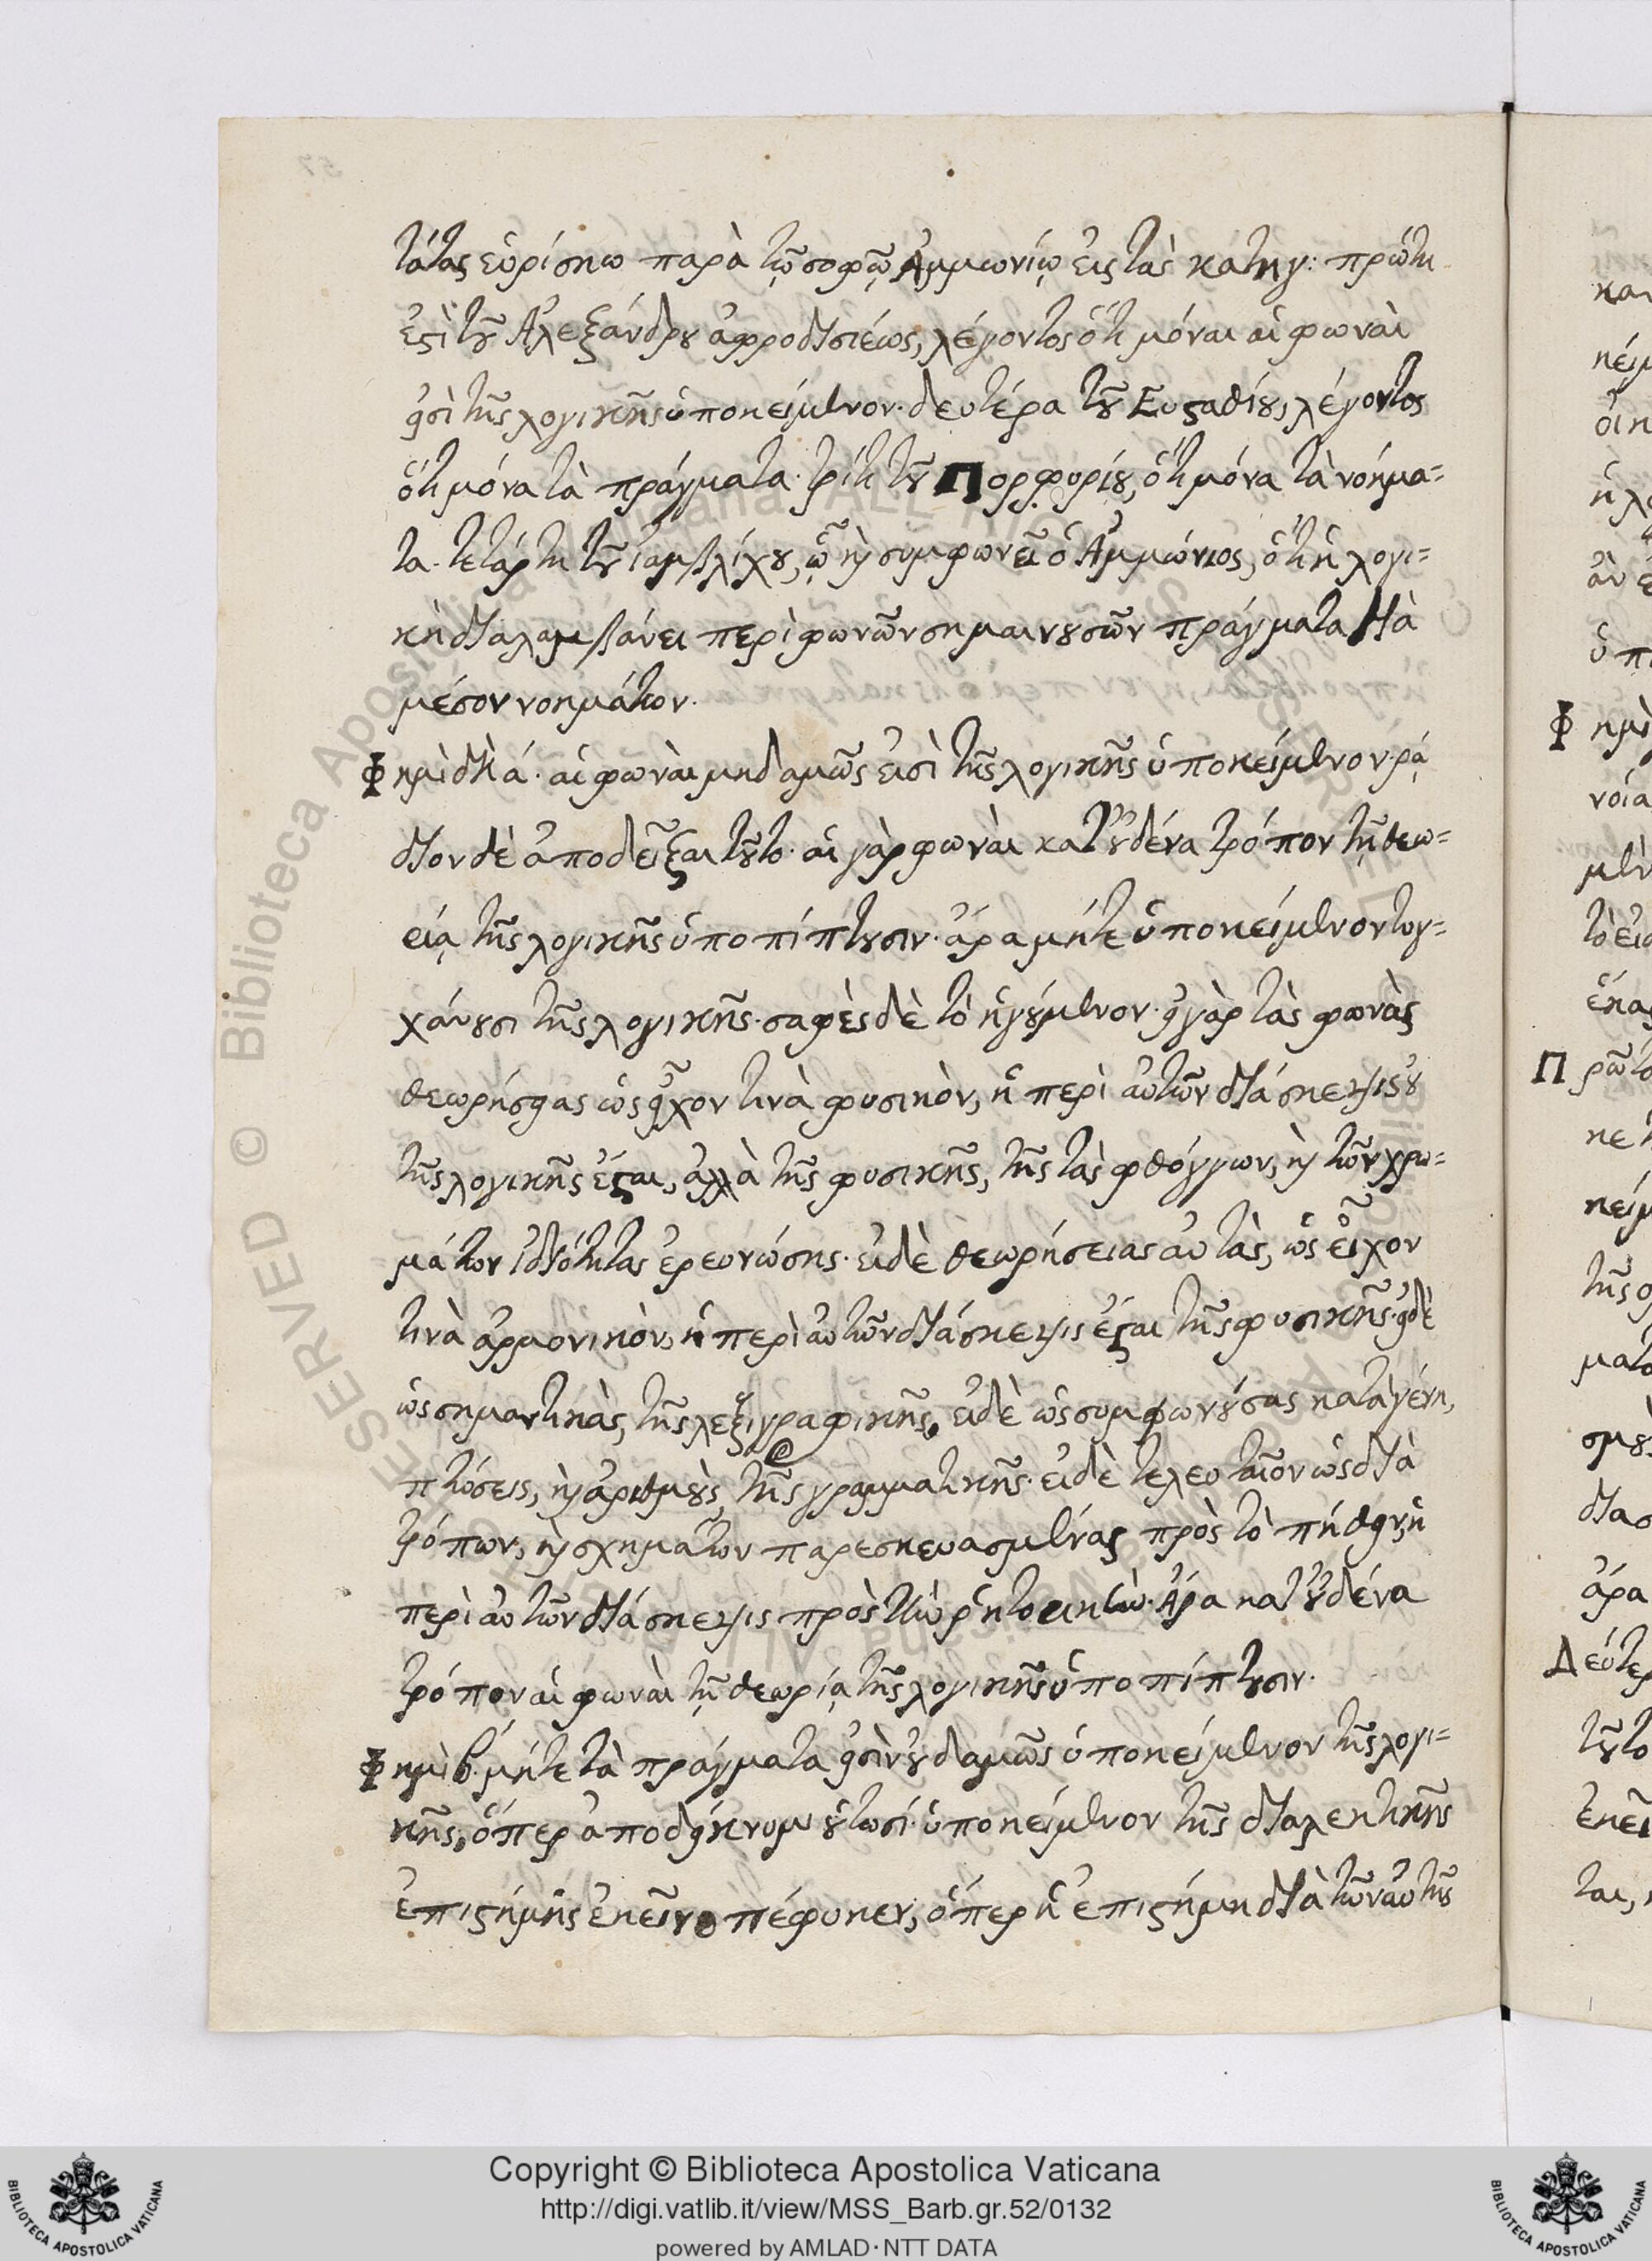 τάτας εὑρίσκω παρὰ τῷ σοφῷ Ἀμμωνίῳ εἰς τὰς κατηγ: πρώτη
ἐστὶ τοῦ Ἀλεξάνδρου ἀφροδισιέως, λέγοντος ὅτι μόναι αἱ φωναὶ
εἰσὶ τῆς λογικῆς ὑποκείμενον. δευτέρα τοῦ Εὐσταθίου, λέγοντος
ὅτι μόνα τὰ πράγματα. τρίτη τοῦ Πορφυρίου, ὅτι μόνα τὰ νοήμα=
τα. τετάρτη τοῦ ἰαμβλίχου, ᾧ καὶ συμφωνεῖ ὁ Ἀμμώνιος, ὅτι ἡ λογι=
κὴ διαλαμβάνει περὶ φωνῶν σημαινουσῶν πράγματα διὰ
μέσον νοημάτων.
Φημὶ δὴ ά. αἱ φωναὶ μηδαμῶς εἰσὶ τῆς λογικῆς ὑποκείμενον. ρά
διον δὲ ἀποδεῖξαι τοῦτο. αἱ γὰρ φωναὶ κατ' οὐδένα τρόπον τῇ θεω=
είᾳ τῆς λογικῆς ὑποπίπτουσιν. ἄρα μήτε ὑποκείμενον τυγ=
χάνουσι τῆς λογικῆς. σαφὲς δὲ τὸ ἡγούμενον. εἰ γὰρ τὰς φωνὰς
θεωρήσειας ὡς εἶχον τινὰ φυσικὸν, ἡ περὶ αὐτῶν διάσκεψις οὐ
τῆς λογικῆς ἔσται, ἀλλὰ τῆς φυσικῆς, τῆς τὰς φθόγγων, καὶ τῶν χρω=
μάτων ἰδιότητας ἐρευνώσης. εἰ δὲ θεωρήσειας αὐτὰς, ὡς εἶχον
τινὰ ἁρμονικὸν, ἡ περὶ αὐτῶν διάσκεψις ἔσται τῆς φυσικῆς. εἰ δὲ
ὡς σημαντικὰς, τῆς λεξιγραφικῆς. εἰ δὲ ὡς συμφωνούσας κατὰ γένη,
πτώσεις, καὶ ἀριθμοὺς, τῆς γραμματικῆς. εἰ δὲ τελευταῖον ὡς διὰ
τρόπων, καὶ σχημάτων παρεσκευασμένας πρὸς τὸ πήθειν, ἡ
περὶ αὐτῶν διάσκεψις πρὸς τὴν ῥητορικήν. Ἄρα κατ' οὐδένα
τρόπον αἱ φωναὶ τῇ θεωρίᾳ τῆς λογικῆς ὑποπίπτουσιν.
Φημὶ β. μήτε τὰ πράγματα εἰσὶν οὐδαμῶς ὑποκείμενον τῆς λογι=
κῆς, ὅπερ ἀποδείκνυμι οὑτωσί. ὑποκείμενον τῆς διαλεκτικῆς
ἐπιστήμης ἐκεῖνο πέφυκεν, ὅπερ ἡ ἐπιστήμη διὰ τῶν αὐτῆς
Copyright © Biblioteca Apostolica Vaticana
http://digi.vatlib.it/view/MSS_Barb.gr.52/0132
powered by AMLAD·NTT DATA